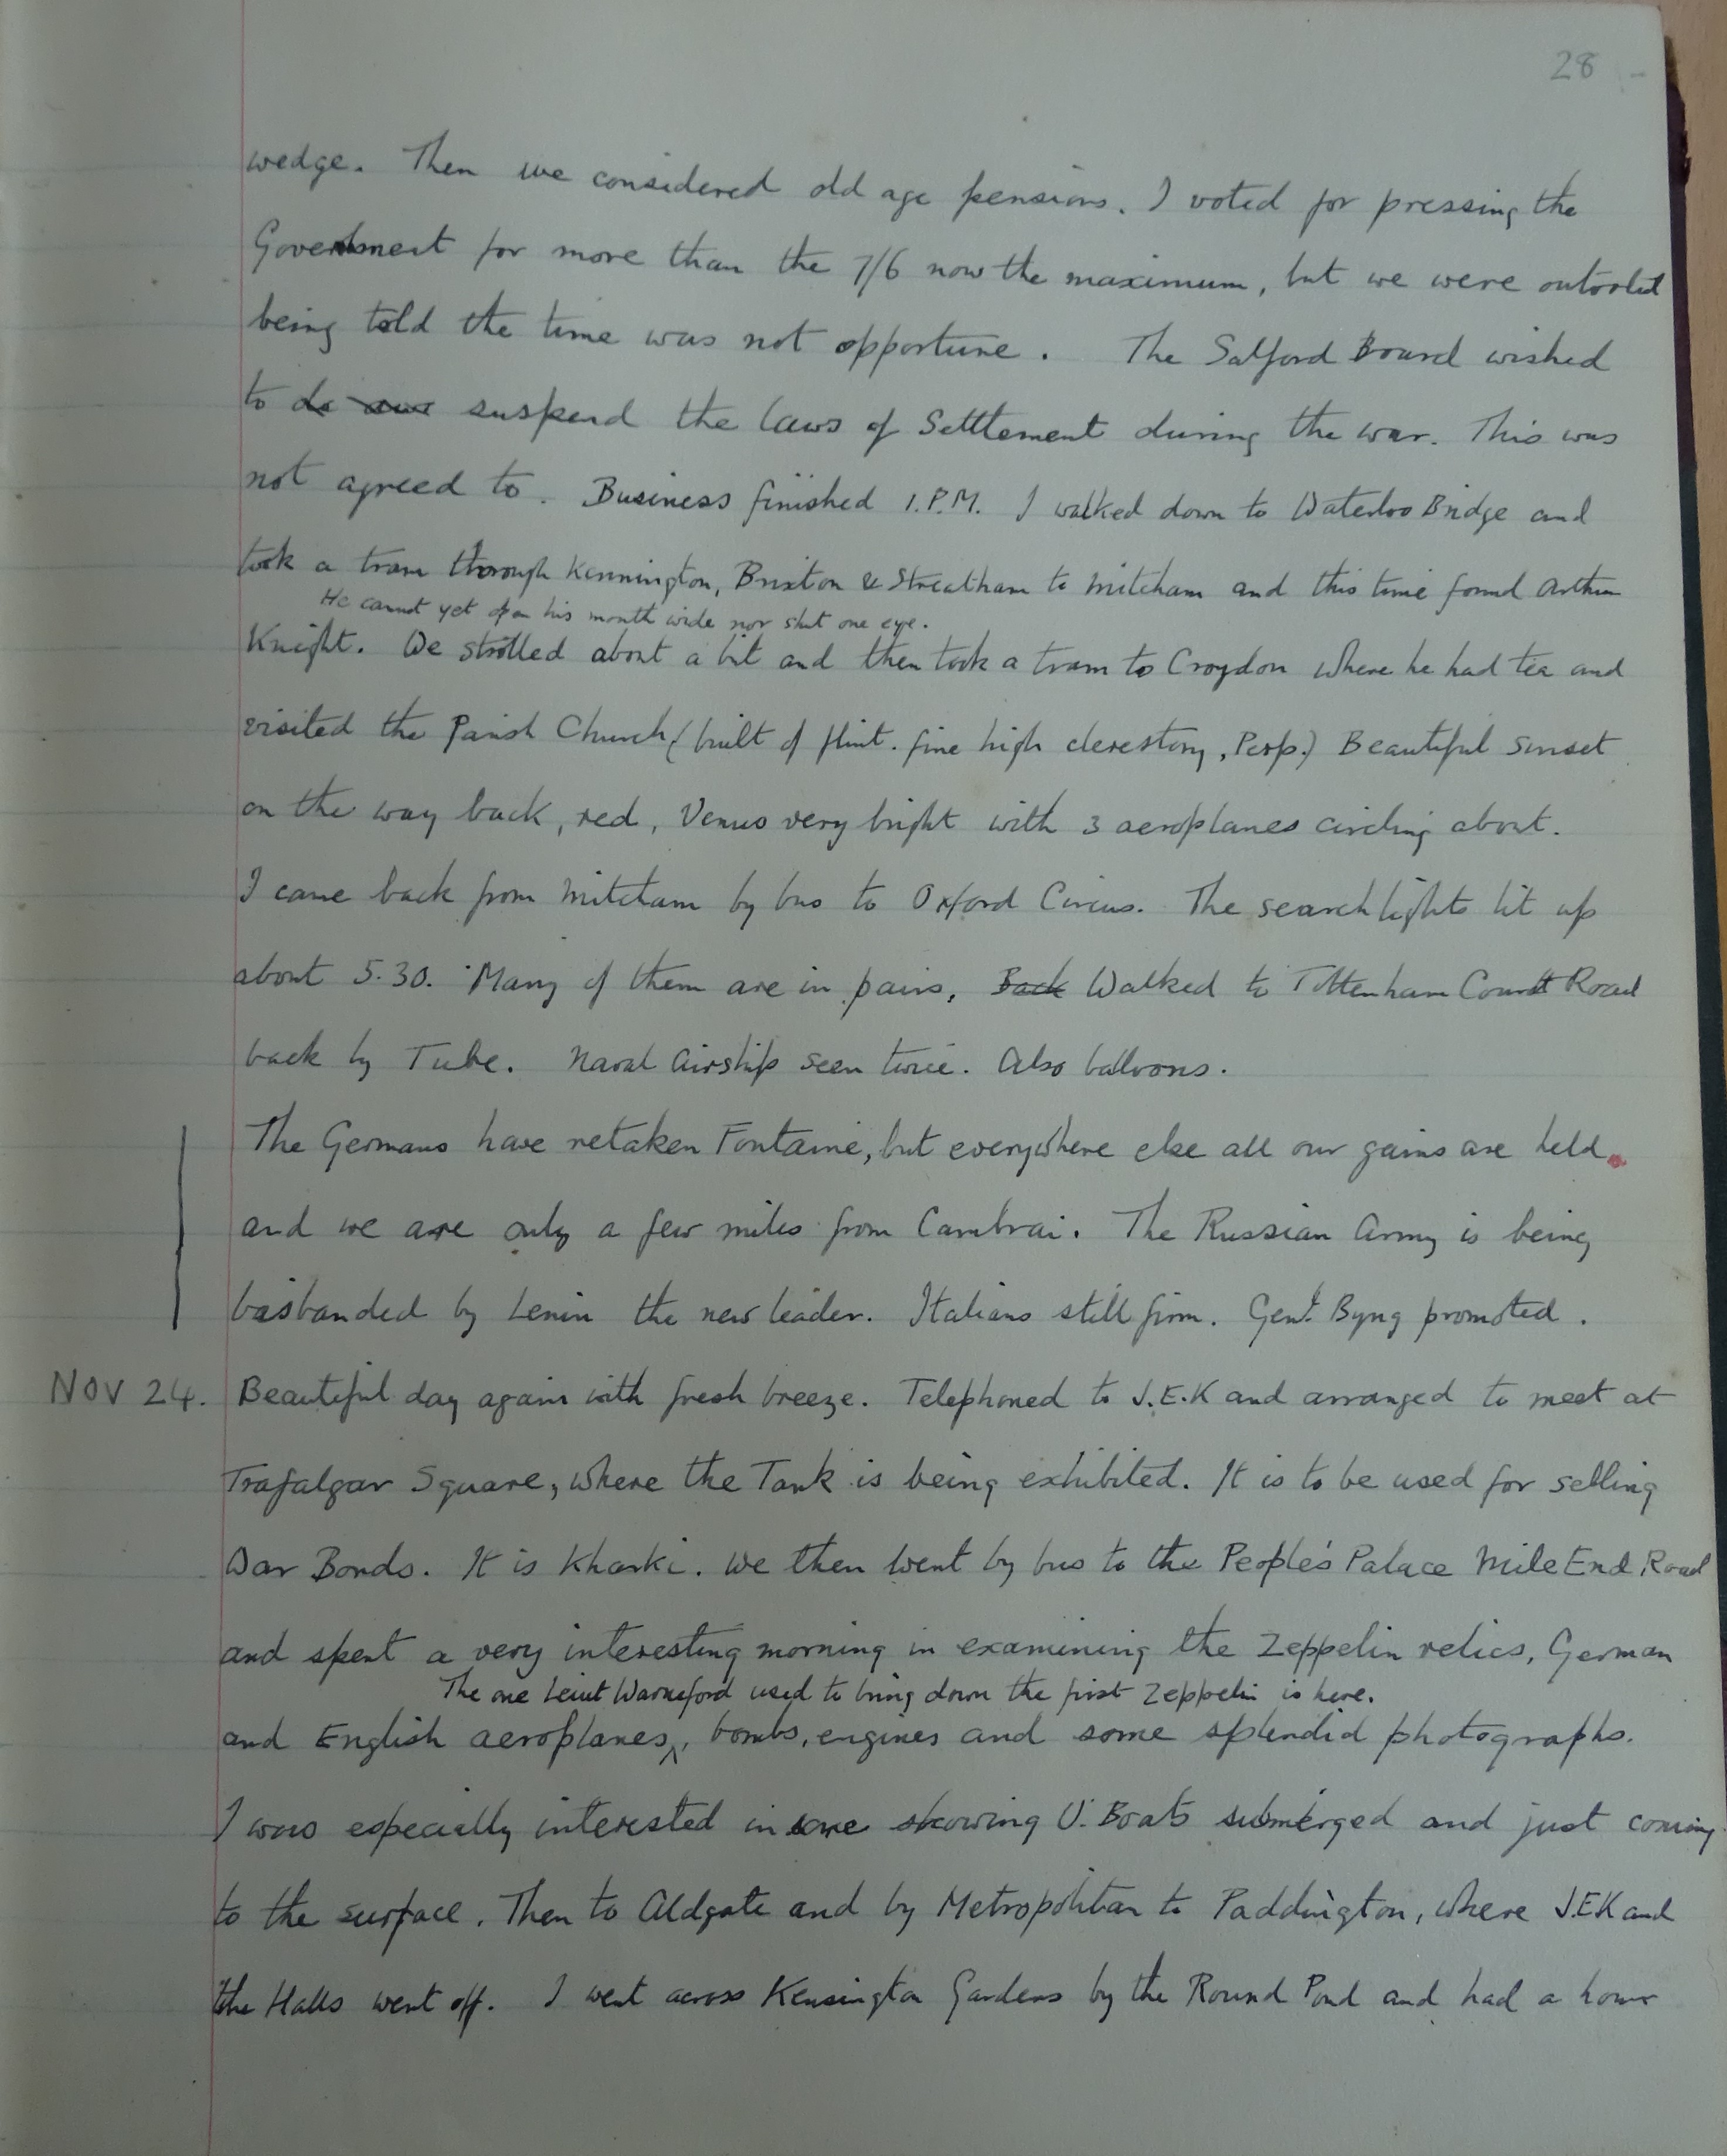 28
wedge. Then we considered old age pensions. I voted for pressing the
Government for more than the 7/6 now the maximum, but we were outvoted
being told the time was not opportune. The Salford Board wished
to suspend the laws of Settlement during the war. This was
not agreed to. Business finished 1.P.M. I walked down to Waterloo Bridge and
took a tram thorough Kennington, Brixton & Streatham to Mitcham and this time found Arthur
He cannot yet open his mouth wide nor shut one eye.
Knight. We strolled about a bit and then took a tram to Croydon where he had tea and
visited the Parish Church (built of flint. fine high clerestory, Perp.) Beautiful sunset
on the way back, red, Venus very bright with 3 aeroplanes circling about.
I came back from Mitcham by bus to Oxford Circus. The searchlights lit up
about 5.30. Many of them are in pairs. Back Walked to Tottenham Court Road
back by Tube. Naval Airship seen twice. Also balloons.
The Germans have retaken Fontaine, but everywhere else all our gains are held
and we are only a few miles from Cambrai. The Russian Army is being
basbanded by Lenin the new leader. Italians still firm. Genl. Byng promoted.
NOV 24. Beautiful day again with fresh breeze. Telephoned to J.E.K and arranged to meet at
Trafalgar Square, where the Tank is being exhibited. It is to be used for selling
War Bonds. It is Kharki. We then went by bus to the People's Palace Mile End Road
and spent a very interesting morning in examining the Zeppelin relics, German
The one Leiut Warneford used to bring down the first Zeppelin is here.
and English aeroplanes, bombs, engines and some splendid photographs.
I was especially interested in some showing U. Boats submerged and just coming
to the surface. Then to Aldgate and by Metropolitan to Paddington, where J.E.K and
the Halls went off. I went across Kensington Gardens by the Round Pond and had a hour